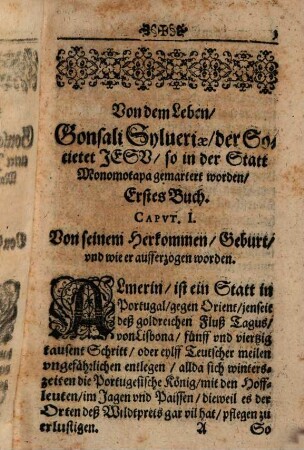 3
Von dem Leben/
Gonsali Sylueriæ/der So-
cietet JESV/ so in der Statt
Monomotapa gemartert worden/
Erstes Buch.
CAPVT. I.
Von seinem Herkommen/ Geburt/
vnd wie er aufferzogen worden.
ALmerin/ ist ein Statt in
Portugal/gegen Orient/jenseit
deß goldreichen Fluß Tagus/
von Lisbona/ fünff vnd viertzig
tausent Schritt/ oder eylff Teutscher meilen
vngefährlichen entlegen/ allda sich winters-
zeiten die Portugesische König/mit den Hoff-
leuten/im Jagen vnd Paissen/ dieweil es der
Orten deß Wildtpreis gar vil hat/ pflegen zu
erlustigen. A So